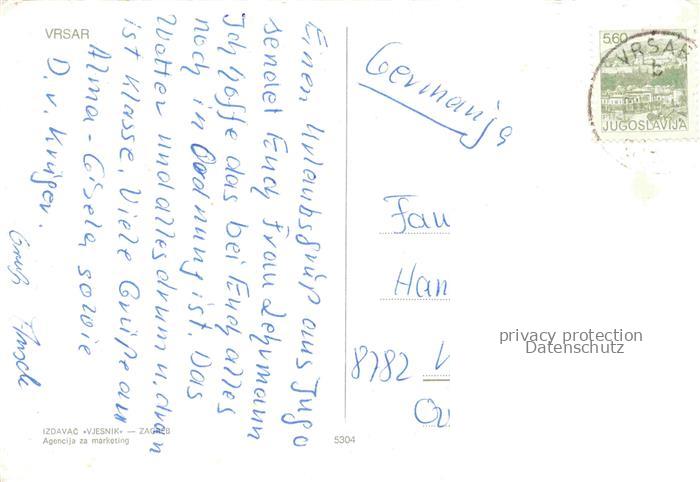 VRSAR
Einen Urlaubsgruß aus Jugo
sendet Euch Frau Lehmann
Ich hoffe das bei Euch alles
noch in Ordnung ist. Das
Wetter und alles drum u. dran
ist Klasse. Viele Grüße an
Alma - Gisela sowie
D. v. Krüger.
Gruß
IZDAVAČ »VJESNIK« — ZAGREB
Agencija za marketing
5304
Germanija
5.60
VRSAR
JUGOSLAVIJA
Fam
Han
8782
privacy protection
Datenschutz